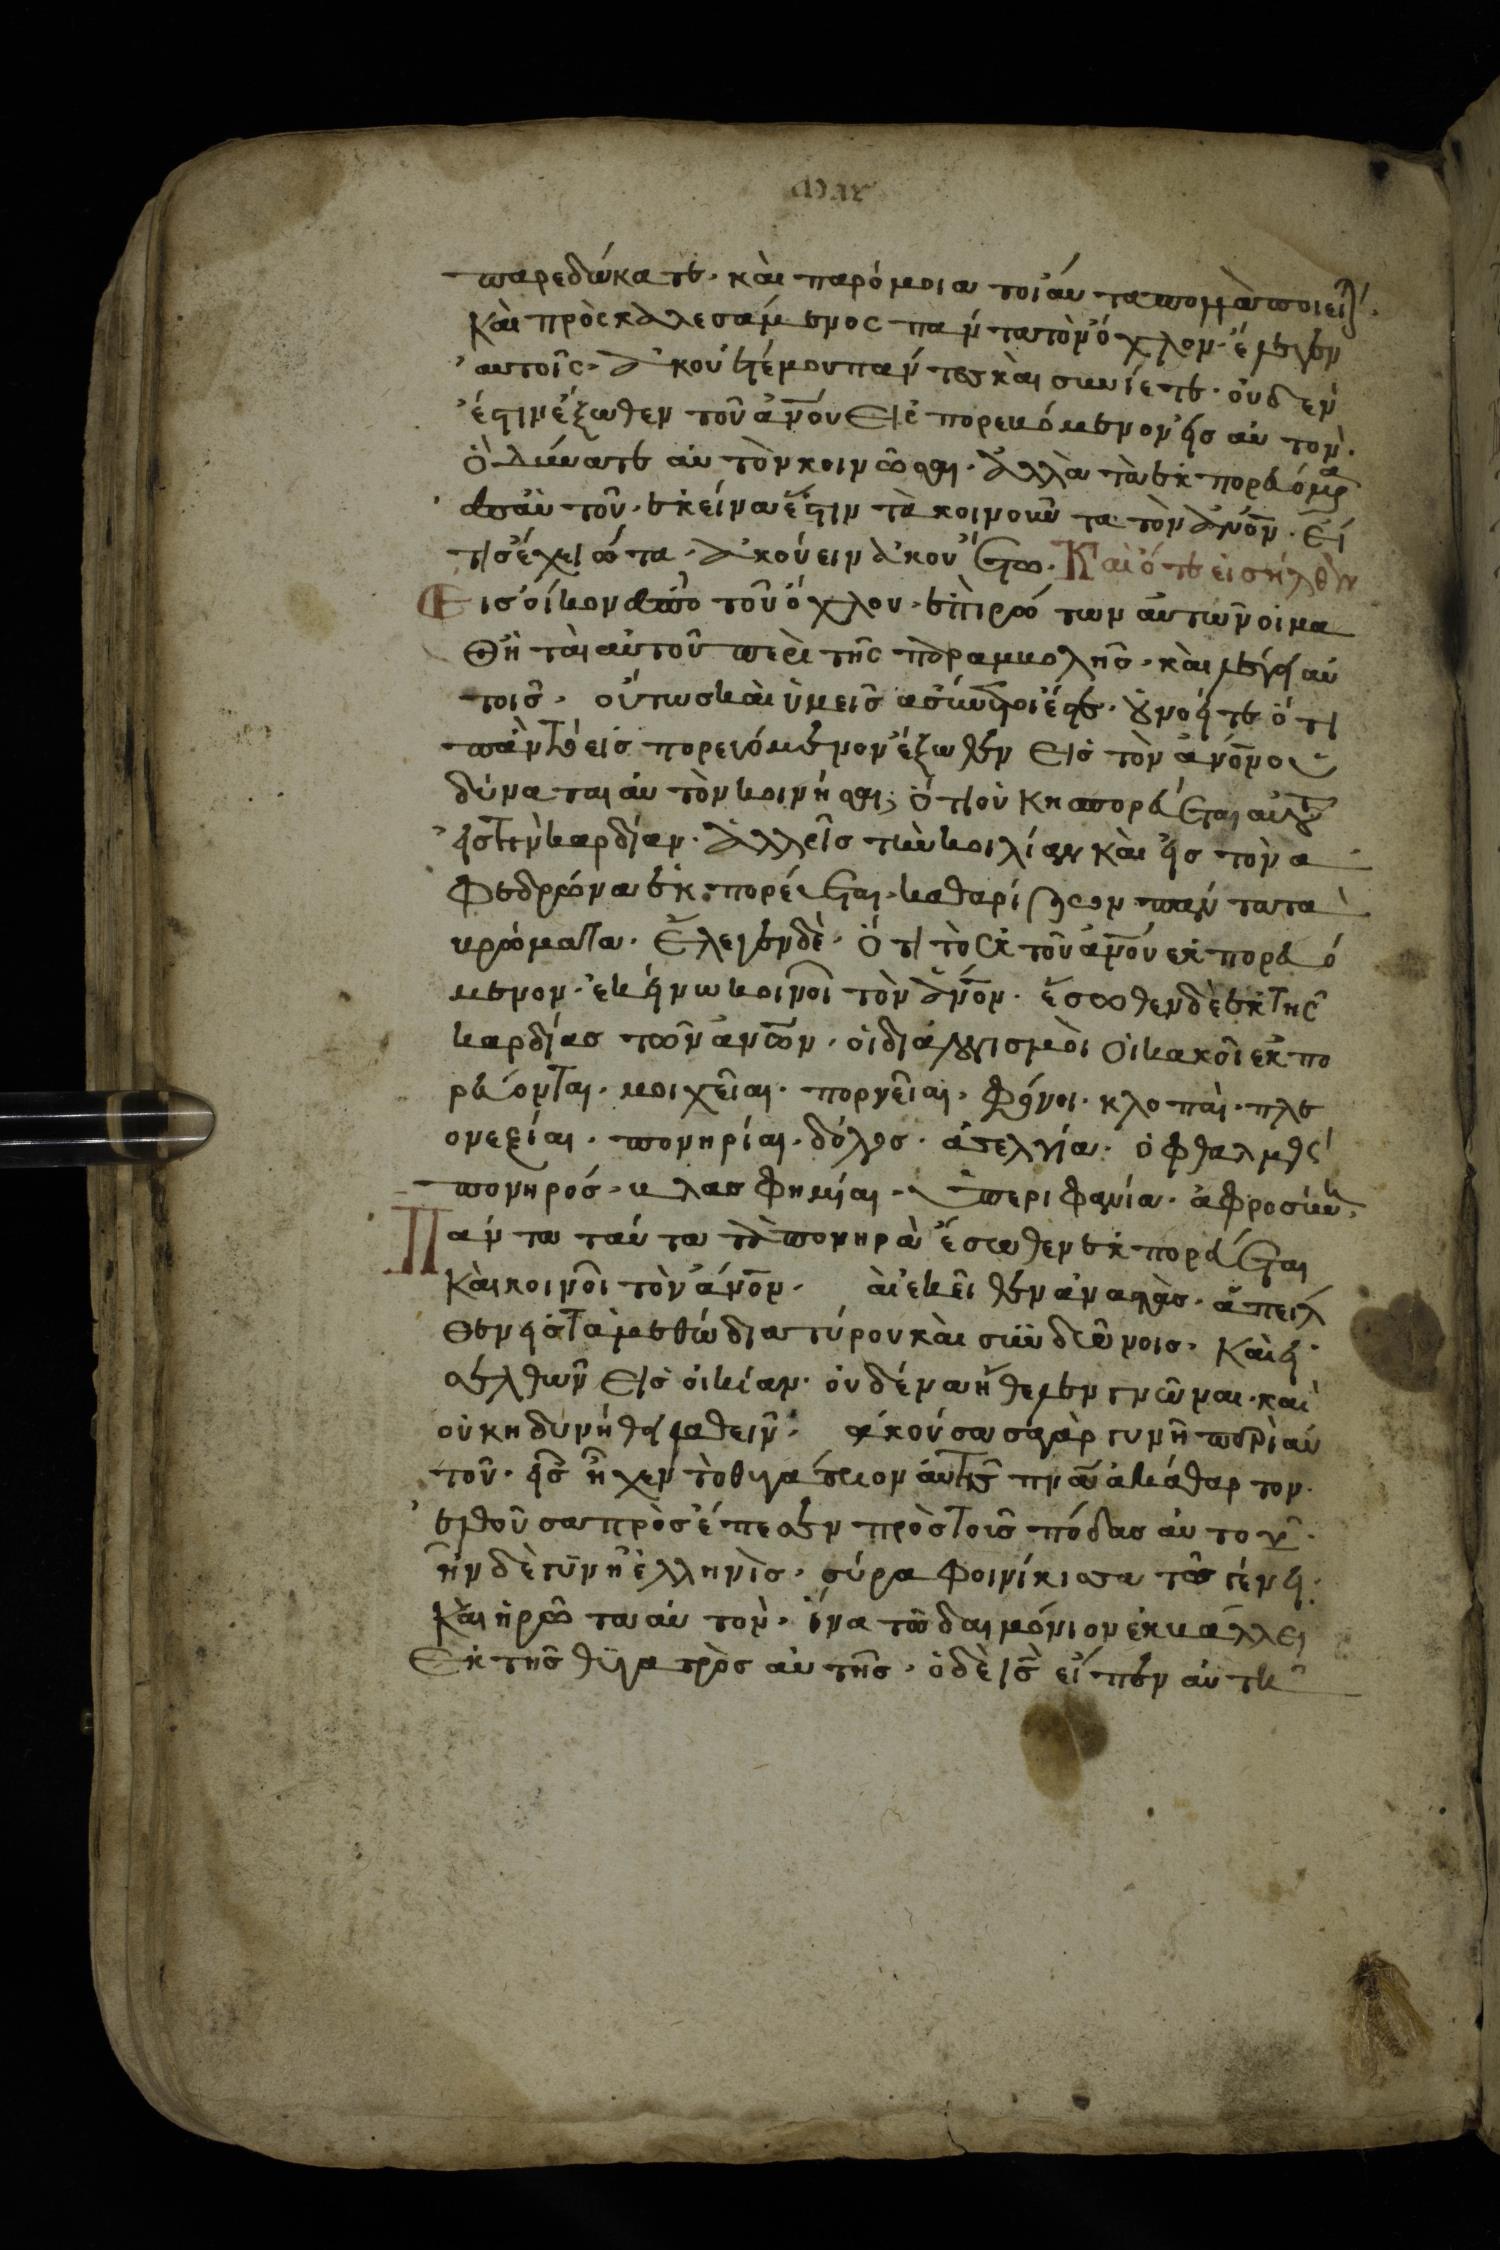 Mar
παρεδώκατε· καὶ παρόμοια τοιάυτα πολλὰ ποιεῖτ·
Καὶ πρὸσκαλεσάμενος πάντα τὸν όχλον· έλεγεν
αυτοῖς· ἀκούετέ μου πάντες καὶ συνίετε· ὀυδεν
έστιν έξωθεν τοῦ ἀνου Εἰσπορευόμενον εἰσ αυτον·
Ὁ δύναται αυτὸν κοινῶσαι· ἀλλὰ τὰ ἐκπορευόμεα
απ᾽ αὐτοῦ· ἐκείνα ἔστιν τὰ κοινοῦντα τὸν ἀνον· Εἴ
τισ έχει ώτα· ἀκούειν ἀκουέτω· Καὶ ότε εισήλθεν
Εισ οίκον ἀπὸ τοῦ όχλου· ἐπηρώτων αυτων οι μα
θηταὶ αυτοῦ περὶ τῆς παραμβολησ· καὶ λέγει αυ
τοισ· ούτωσ καὶ ὑμεισ ασύνετοι έστε· οὐ νοείτε ότι
πᾶν τὸ εισπορευόμενον έξωθεν Εισ τὸν ἀνον ου
δύναται αυτὸν κοινήσαι; Ότι οὐκ ησπορεύεται αυτοῦ
εἰσ τὴν καρδίαν· Ἀλλ εῖσ τὴν κοιλίαν καὶ εἰσ τὸν α
φεδρῶνα ἐκπορεύεται· καθαρίζων πάντα τα
βρώματα· Ἔλεγεν δὲ· Ότι τὸ ἐκ τοῦ ἀνου εκπορευό
μενον· ἐκείνω κοινοῖ τὸν ἀνον· ἔσωθεν δὲ ἐκ τῆς
καρδίασ τῶν ἀνων· οἱ διαλογισμοὶ Οἱ κακοῖ εκπο
ρεύονται· μοιχεῖαι· πορνεῖαι· Φόνοι· κλοπαὶ· πλε
ονεξίαι· πονηρίαι· δόλοσ· ἀσελγία· ὀφθαλμὸς
πονηρόσ· βλασφημίαι· ὑπεριφανία· ἀφροσύνη·
Πάντα ταύτα τὰ πονηρὰ ἔσωθεν ἐκπορεύεται
Καὶ κοινοῖ τὸν ἀνον· ὰι εκεῖθεν ἀναστὰσ· ἄπειλ
θεν εἰσ τα μεθώδια τύρου καὶ συνδιῶνοισ· Καὶ εἰ
σελθων Εἰσ οἰκίαν· ὀυδένα ἤθελεν γνῶναι· καὶ
οὐκ ηδυνήθη λαθεῖν· ἀκούσασα γὰρ γυνὴ περὶ αυ
τοῦ· εἰσ ἣ χεν τὸ θυγάτριον ἁυτῆς πνα ἀκάθαρτον·
ελθοῦσα πρὸσέπεσεν πρὸσ τοισ πόδασ αυτοῦ·
ἦν δὲ γυνὴ ἑλληνὶσ· σύρα Φοινίκισσα τῶ γένει·
Καὶ ηρώτα αυτον· ίνα τῶ δαιμόνιον ἐκβάλλει
Εκ τησ θυγατρὸσ αυτησ· ὁ δὲ ισ εἴπεν αυτη